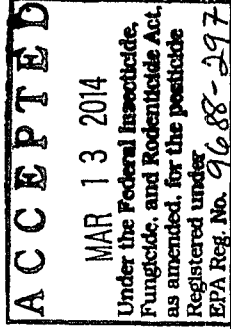 ACCEPTED
MAR 13 2014
Under the Federal Insecticide,
Fungicide, and Rodenticide Act,
as amended, for the pesticide
Registered under
EPA Reg. No. 9688-297